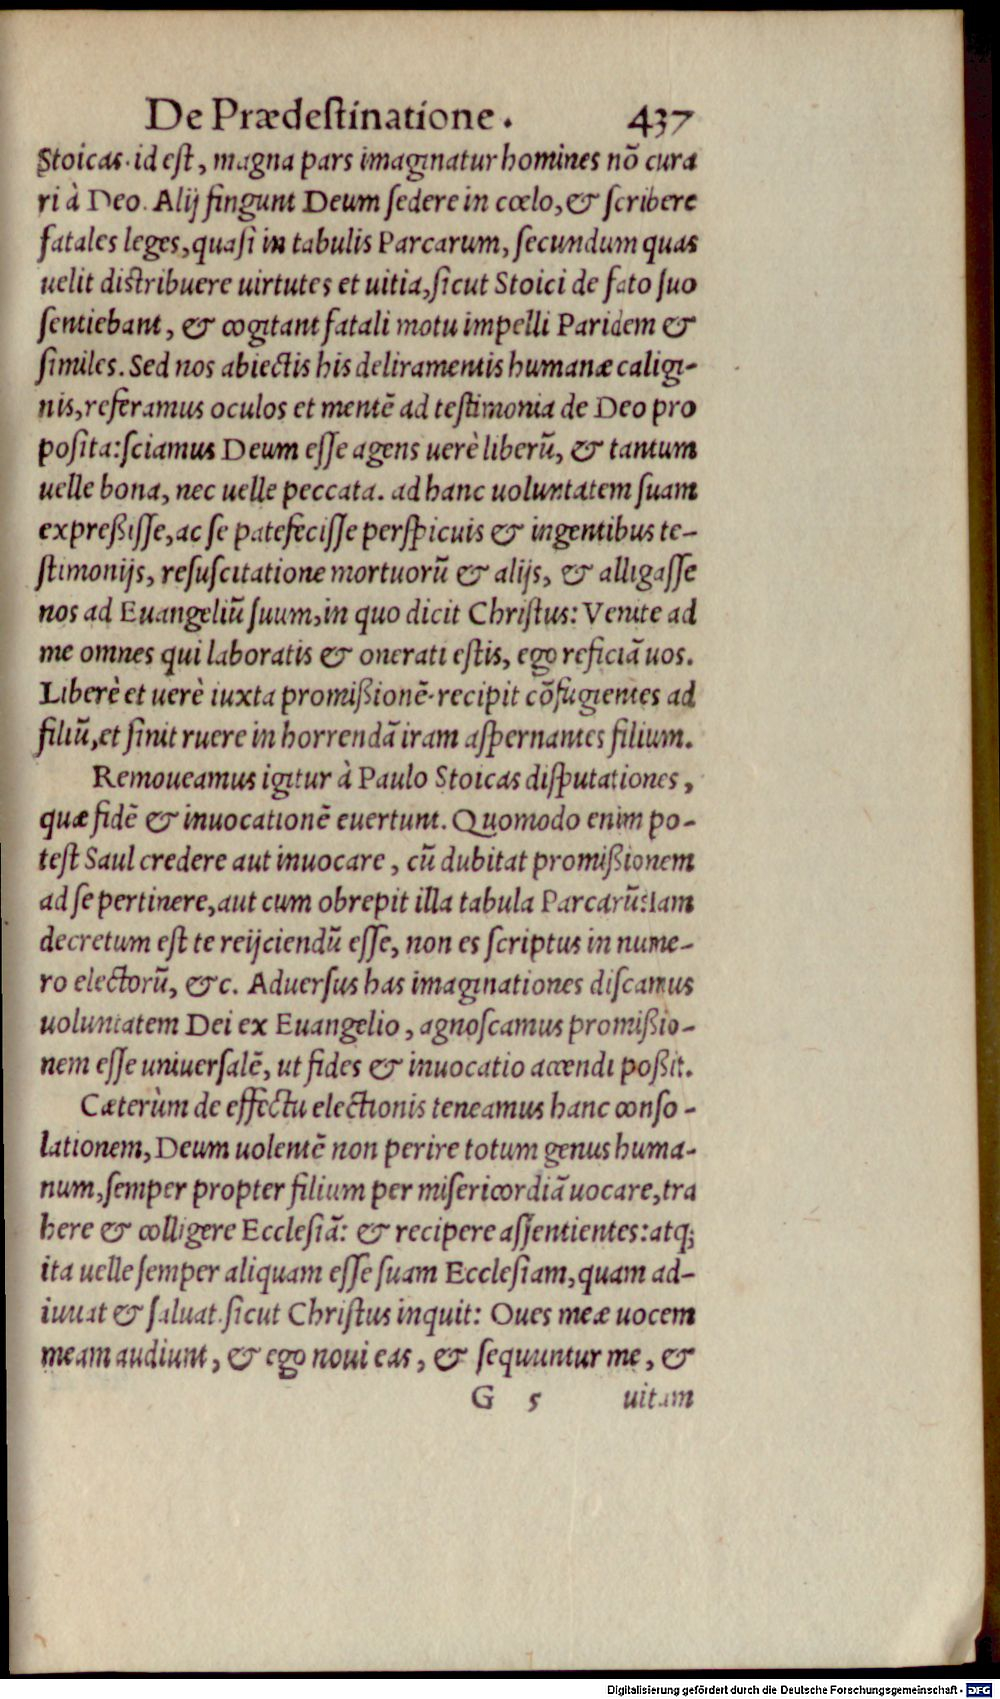 De Prædestinatione. 437
Stoicas. id est, magna pars imaginatur homines nō cura
ri à Deo. Alij fingunt Deum sedere in cœlo, & scribere
fatales leges, quasi in tabulis Parcarum, secundum quas
uelit distribuere uirtutes et uitia, sicut Stoici de fato suo
sentiebant, & cogitant fatali motu impelli Paridem &
similes. Sed nos abiectis his deliramentis humanæ caligi-
nis, referamus oculos et mentē ad testimonia de Deo pro
posita: sciamus Deum esse agens uerè liberū, & tantum
uelle bona, nec uelle peccata. ad hanc uoluntatem suam
expreßisse, ac se patefecisse perspicuis & ingentibus te-
stimonijs, resuscitatione mortuorū & alijs, & alligasse
nos ad Euangeliū suum, in quo dicit Christus: Venite ad
me omnes qui laboratis & onerati estis, ego reficiā uos.
Liberè et uerè iuxta promißionē recipit cōfugientes ad
filiū, et sinit ruere in horrendā iram aspernantes filium.
Remoueamus igitur à Paulo Stoicas disputationes,
quæ fidē & inuocationē euertunt. Quomodo enim po-
test Saul credere aut inuocare, cū dubitat promißionem
ad se pertinere, aut cum obrepit illa tabula Parcarū: Iam
decretum est te reijciendū esse, non es scriptus in nume-
ro electorū, &c. Aduersus has imaginationes discamus
uoluntatem Dei ex Euangelio, agnoscamus promißio-
nem esse uniuersalē, ut fides & inuocatio accendi poßit.
Cæterùm de effectu electionis teneamus hanc conso-
lationem, Deum uolentē non perire totum genus huma-
num, semper propter filium per misericordiā uocare, tra
here & colligere Ecclesiā: & recipere assentientes: atq;
ita uelle semper aliquam esse suam Ecclesiam, quam ad-
iuuat & saluat. sicut Christus inquit: Oues meæ uocem
meam audiunt, & ego noui eas, & sequuntur me, &
G 5 uitam
Digitalisierung gefördert durch die Deutsche Forschungsgemeinschaft - DFG